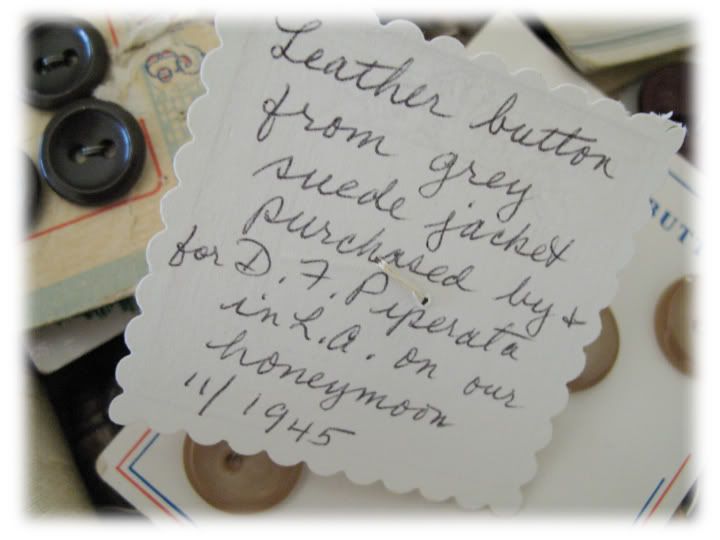 Leather button
from grey
suede jacket
purchased by +
for D. F. Piperata
in L.A. on our
honeymoon
11/1945
BUTT